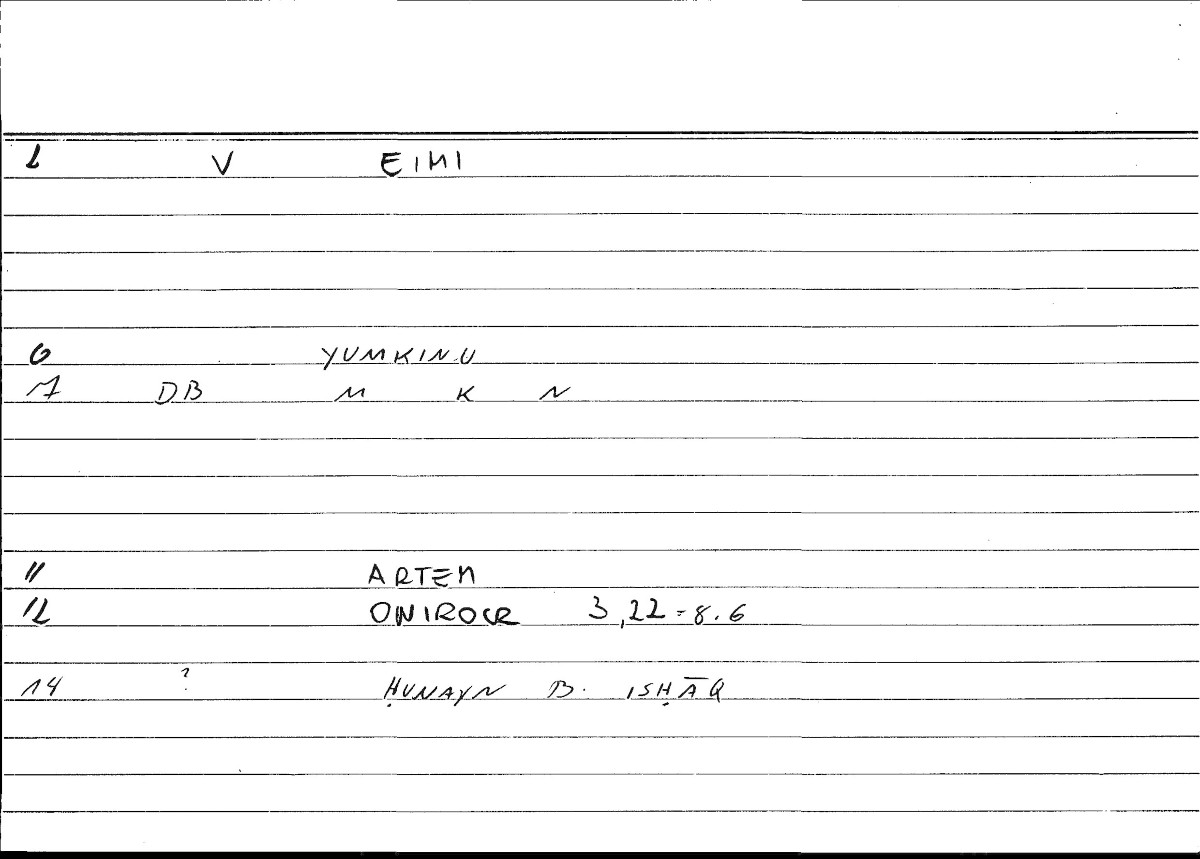 1 V EIMI
6 YUMKINU
7 DB M K N
11 ARTEM
12 ONIROCR 3,22-8.6
14 ? ḤUNAYN B. ISḤĀQ